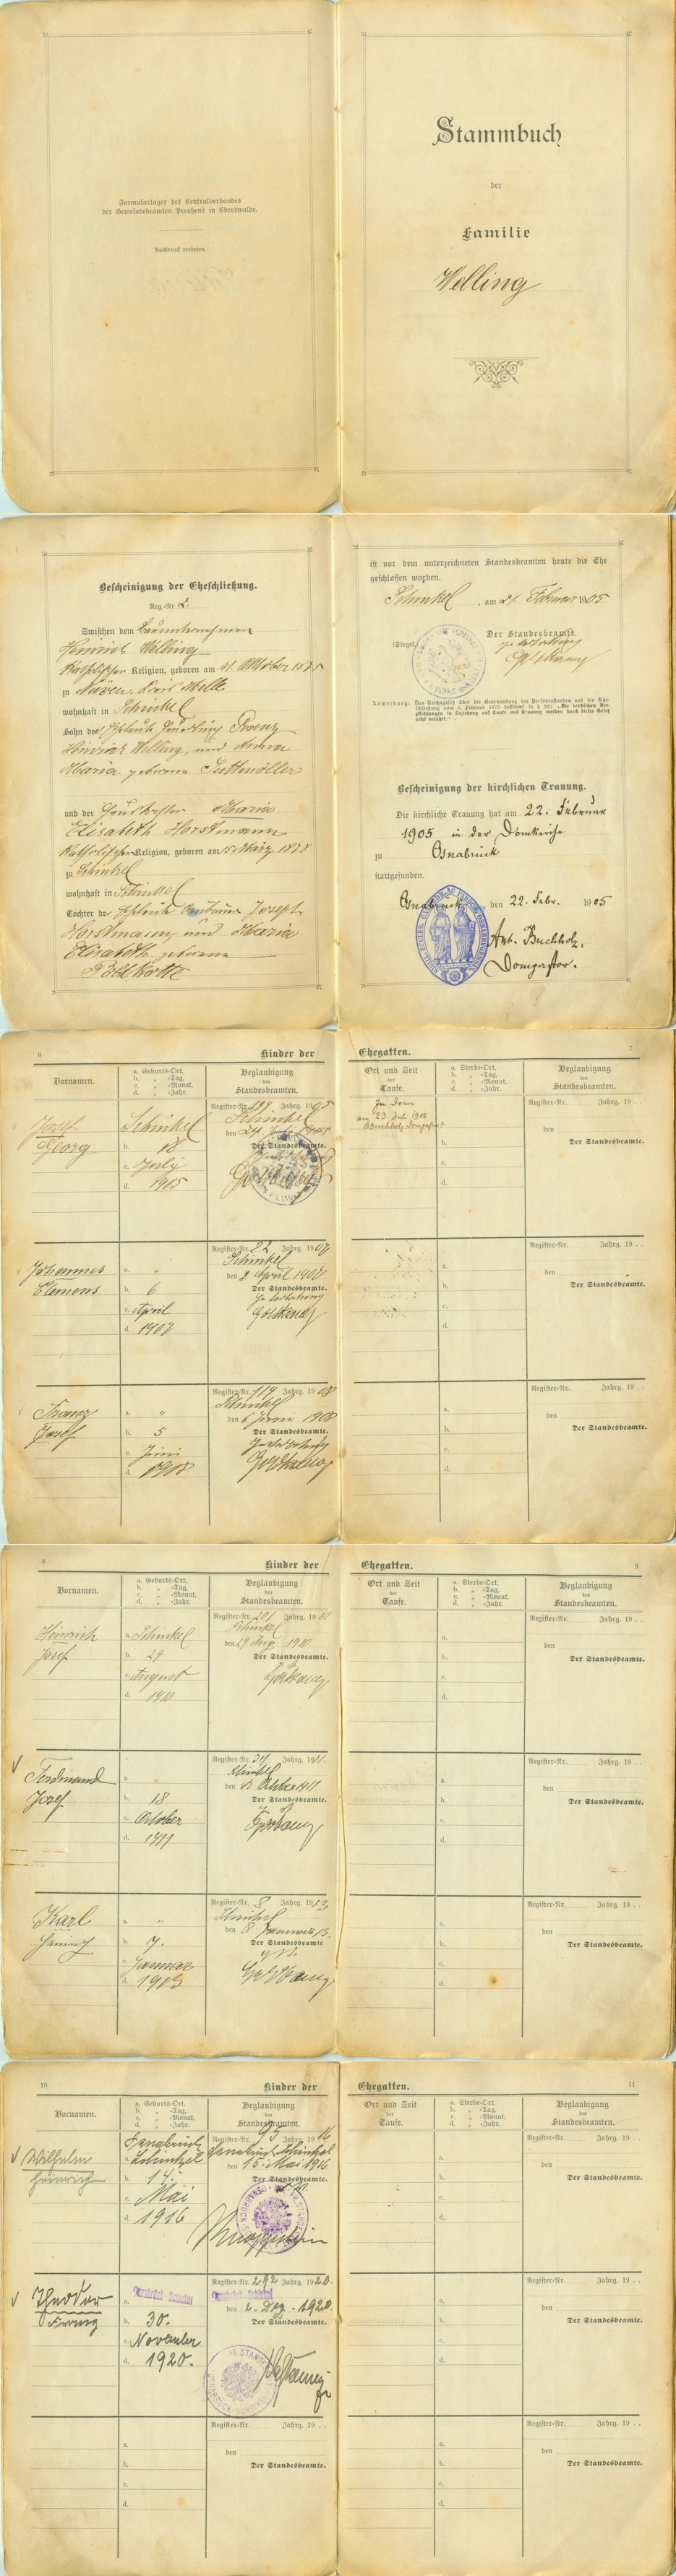 Formularlager des Centralverbandes
der Gemeindebeamten Preußens in Eberswalde.
Nachdruck verboten.
Stammbuch
der
Familie
Welling
Bescheinigung der Eheschließung.
Reg.-Nr. 2.
Zwischen dem Bauunternehmer
Heinrich Welling
katholischer Religion, geboren am 31. Oktober 1875
zu
wohnhaft in Schinkel
Sohn des Franz
Heinrich Welling und Anna
Maria geborene Suttmöller
und der Haustochter Maria
Elisabeth Horstmann
katholischer Religion, geboren am 15. März 1878
zu Schinkel
wohnhaft in Schinkel
Tochter der Eheleute Joseph
Horstmann und Maria
Elisabeth geborene
Pöhlkotte
ist vor dem unterzeichneten Standesbeamten heute die Ehe
geschlossen worden.
Schinkel, am 21. Februar 1905
(Siegel.)
Der Standesbeamte.
Anmerkung: Das Reichsgesetz über die Beurkundung des Personenstandes und die Ehe-
schließung vom 6. Februar 1875 bestimmt in § 82: „Die kirchlichen Ver-
pflichtungen in Beziehung auf Taufe und Trauung werden durch dieses Gesetz
nicht berührt."
Bescheinigung der kirchlichen Trauung.
Die kirchliche Trauung hat am 22. Februar
1905 in der Domkirche
zu Osnabrück
stattgefunden.
Osnabrück, den 22. Febr. 1905
Ant. Buchholz,
Dompastor.
6
Kinder der
Vornamen.
a. Geburts-Ort.
b. „ -Tag.
c. „ -Monat.
d. „ -Jahr.
Beglaubigung
des
Standesbeamten.
Josef
Georg
Schinkel
b. 18
c. July
d. 1905
Register-Nr. 197 Jahrg. 1905
Schinkel
den 24. July 1905
Der Standesbeamte.
Johannes
Clemens
a. „
b. 6
c. April
d. 1907
Register-Nr. 82 Jahrg. 1907
Schinkel
den 8 April 1907
Der Standesbeamte.
Franz
Josef
a. „
b. 5
c. Juni
d. 1908
Register-Nr. 114 Jahrg. 1908
Schinkel
den 6 Juni 1908
Der Standesbeamte.
Ehegatten.
7
Ort und Zeit
der
Taufe.
a. Sterbe-Ort.
b. „ -Tag.
c. „ -Monat.
d. „ -Jahr.
Beglaubigung
des
Standesbeamten.
Im Dom
am 23. Juli 1905
Buchholz Dompastor
a.
b.
c.
d.
den
Der Standesbeamte.
a.
b.
c.
d.
Register-Nr. Jahrg. 19 . .
den
Der Standesbeamte.
a.
b.
c.
d.
Register-Nr. Jahrg. 19 . .
den
Der Standesbeamte.
8
Kinder der
Vornamen.
a. Geburts-Ort.
b. „ -Tag.
c. „ -Monat.
d. „ -Jahr.
Beglaubigung
des
Standesbeamten.
Heinrich
Josef
a. Schinkel
b. 29
c. August
d. 1910
Register-Nr. 201 Jahrg. 1910
Schinkel
den 29 Aug 1910
Der Standesbeamte.
Ferdinand
Josef
a. „
b. 18
c. Oktober
d. 1911
Register-Nr. Jahrg. 1911.
Schinkel
den Oktober 1911
Der Standesbeamte.
Karl
a. „
b. 7.
c. Januar
d. 1913
Register-Nr. 8 Jahrg. 1913
Schinkel
den 8 Januar 13.
Der Standesbeamte
Ehegatten.
9
Ort und Zeit
der
Taufe.
a. Sterbe-Ort.
b. „ -Tag.
c. „ -Monat.
d. „ -Jahr.
Beglaubigung
des
Standesbeamten.
a.
b.
c.
d.
Register-Nr. Jahrg. 19 . .
den
Der Standesbeamte.
a.
b.
c.
d.
Register-Nr. Jahrg. 19 . .
den
Der Standesbeamte.
a.
b.
c.
d.
Register-Nr. Jahrg. 19 . .
den
Der Standesbeamte.
10
Kinder der
Vornamen.
a. Geburts-Ort.
b. „ -Tag.
c. „ -Monat.
d. „ -Jahr.
Beglaubigung
des
Standesbeamten.
Wilhelm
Heinrich
Osnabrück
Schinkel
b. 14.
c. Mai
d. 1916
Register-Nr. 95 Jahrg. 1916
Osnabrück Schinkel
den 15. Mai 1916
Der Standesbeamte.
Theodor
Franz
a. Osnabrück-Schinkel
b. 30.
c. November
d. 1920.
Register-Nr. 292 Jahrg. 1920.
Osnabrück-Schinkel
den 2. Dez. 1920.
Der Standesbeamte.
a.
b.
c.
d.
Register-Nr. Jahrg. 19 . .
den
Der Standesbeamte.
Ehegatten.
11
Ort und Zeit
der
Taufe.
a. Sterbe-Ort.
b. „ -Tag.
c. „ -Monat.
d. „ -Jahr.
Beglaubigung
des
Standesbeamten.
a.
b.
c.
d.
Register-Nr. Jahrg. 19 . .
den
Der Standesbeamte.
a.
b.
c.
d.
Register-Nr. Jahrg. 19 . .
den
Der Standesbeamte.
a.
b.
c.
d.
Register-Nr. Jahrg. 19 . .
den
Der Standesbeamte.